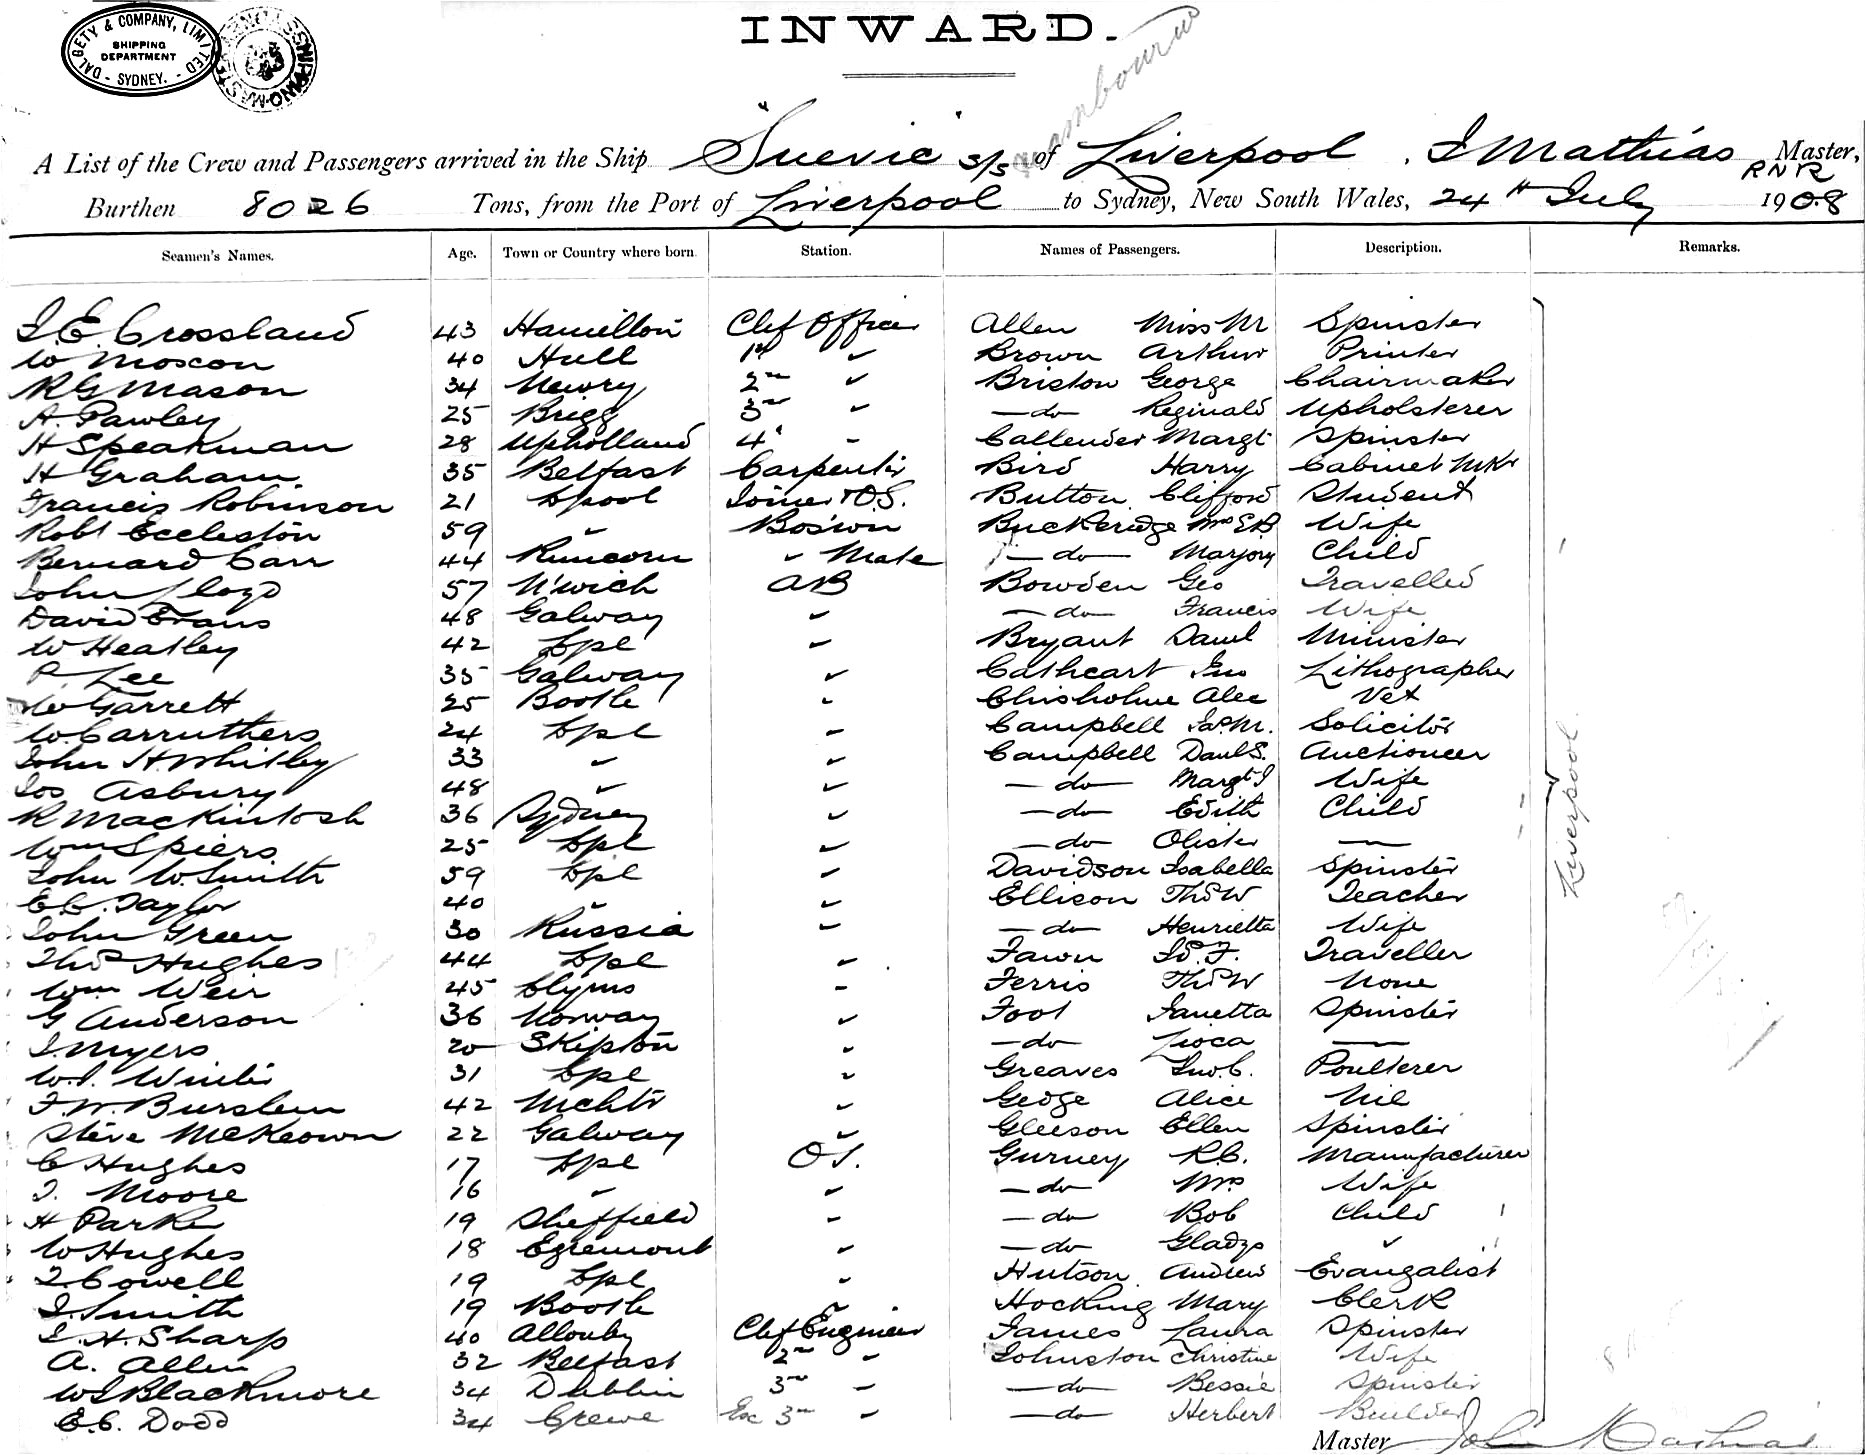 DALGETY & COMPANY, LIMITED
SHIPPING
DEPARTMENT
- SYDNEY. -
INWARD.
A List of the Crew and Passengers arrived in the Ship "Suevic" S/S of Liverpool, J Mathias Master,
RNR
Burthen 8026 Tons, from the Port of Liverpool to Sydney, New South Wales, 24th July 1908
Seamen's Names. Age. Town or Country where born. Station. Names of Passengers. Description. Remarks.
J.E. Crossland 43 Hamilton Chf Officer Allen Miss M Spinster
W Moscon 40 Hull 1st " Brown Arthur Printer
R G Mason 34 Newry 2nd " Briston George Chairmaker
A. Pawley 25 Brigg 3rd " —do— Reginald Upholsterer
H Speakman 28 Upholland 4" " Callender Margt Spinster
H Graham 35 Belfast Carpenter Bird Harry Cabinet Mkr
Francis Robinson 21 Lpool Joiner & O.S. Button Clifford Student
Robt Eccleston 59 " Bos'wn Buckeridge Mrs E.B. Wife
Bernard Carr 44 Runcorn " Mate —do— Marjory Child
John Lloyd 57 N'wich AB Bowden Geo Travelled
David Evans 48 Galway " —do— Francis Wife
W Heatley 42 Lpl " Bryant Danl Minister
P Lee 35 Galway " Cathcart Jno Lithographer
W Garrett 25 Bootle " Chisholme Alec Vet
W. Carruthers 24 Lpl " Campbell Jas. M. Solicitor
John H Whitley 33 " " Campbell Danl S. Auctioneer
Jos Asbury 48 " " —do— Margt J Wife
R Mackintosh 36 Sydney " —do— Edith Child
Wm Spiers 25 Lpl " —do— Olister —
John W. Smith 59 Lpl " Davidson Isabella Spinster
E.C. Taylor 40 " " Ellison Thos W Teacher
John Green 30 Russia " —do— Henrietta Wife
Thos Hughes 44 Lpl " Fawn Jos. F. Traveller
Wm Weir 45 Clyms " Ferris Thos W None
G Anderson 36 Norway " Foot Janetta Spinster
J. Myers 20 Skipton " —do— Zioca —
W.J. Winter 31 Lpl " Greaves Jno. C. Poulterer
F.W. Burslem 42 Mchtr " Gedge Alice Nil
Steve McKeown 22 Galway " Gleeson Ellen Spinster
C Hughes 17 Lpl O.S. Gurney R.C. Manufacturer
J. Moore 16 " " —do— Mrs Wife
H Parke 19 Sheffield " —do— Bob Child
W Hughes 18 Egremont " —do— Gladys "
J Cowell 19 Lpl " Hutson Andrew Evangalist
J. Smith 19 Bootle " Hocking Mary Clerk
J.H. Sharp 40 Allonby Chf Engineer James Laura Spinster
A. Allen 32 Belfast 2nd " Johnston Christine Wife
W J Blackmore 34 Dublin 3rd " —do— Bessie Spinster
E.C. Dodd 34 Crewe Ex 3rd " —do— Herbert Builder
Liverpool
Master John Mathias